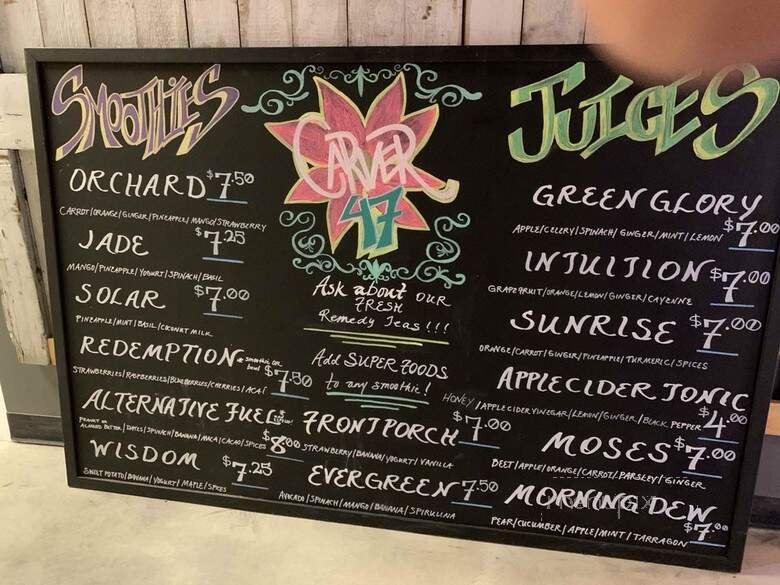 SMOOTHIES
ORCHARD $7.50
CARROT/ORANGE/GINGER/PINEAPPLE/MANGO/STRAWBERRY
JADE $7.25
MANGO/PINEAPPLE/YOGURT/SPINACH/BASIL
SOLAR $7.00
PINEAPPLE/MINT/BASIL/COCONUT MILK
REDEMPTION smoothie or bowl $7.50
STRAWBERRIES/RASPBERRIES/BLUEBERRIES/CHERRIES/ACAI
ALTERNATIVE FUEL $8.00
PEANUT or ALMOND BUTTER/DATES/SPINACH/BANANA/MACA/CACAO/SPICES
WISDOM $7.25
SWEET POTATO/BANANA/YOGURT/MAPLE/SPICES
CARVER
47
Ask about OUR
FRESH
Remedy Teas!!!
Add SUPER FOODS
to any smoothie!
FRONT PORCH $7.00
STRAWBERRY/BANANA/YOGURT/VANILLA
EVERGREEN 7.50
AVOCADO/SPINACH/MANGO/BANANA/SPIRULINA
JUICES
GREEN GLORY
APPLE/CELERY/SPINACH/GINGER/MINT/LEMON $7.00
INTUITION $7.00
GRAPEFRUIT/ORANGE/LEMON/GINGER/CAYENNE
SUNRISE $7.00
ORANGE/CARROT/GINGER/PINEAPPLE/TURMERIC/SPICES
APPLE CIDER TONIC
HONEY/APPLE CIDER VINEGAR/LEMON/GINGER/BLACK PEPPER $4.00
MOSES $7.00
BEET/APPLE/ORANGE/CARROT/PARSLEY/GINGER
MORNING DEW
PEAR/CUCUMBER/APPLE/MINT/TARRAGON $7.00